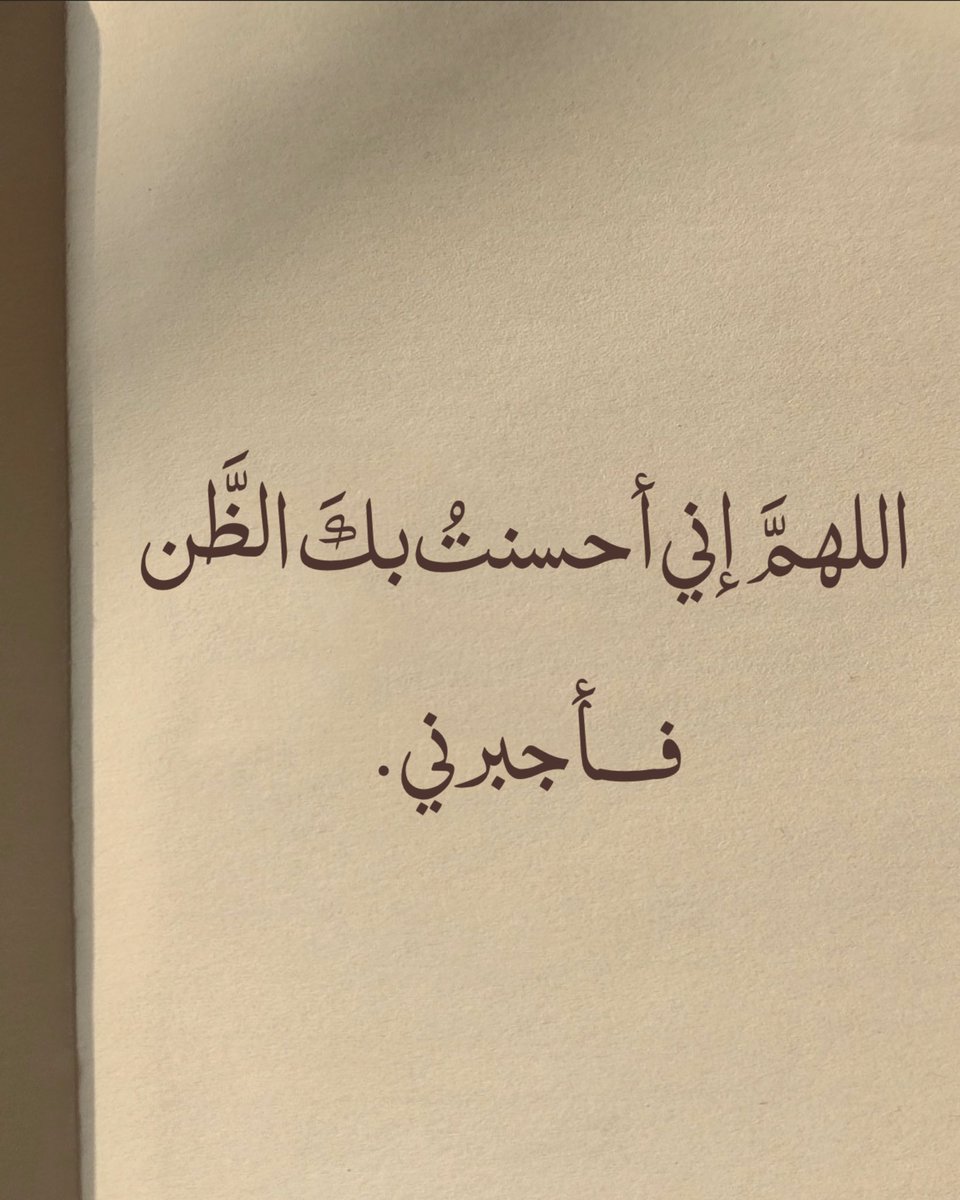 اللهمَّ إني أحسنتُ بكَ الظَّن
فـأجبرني.